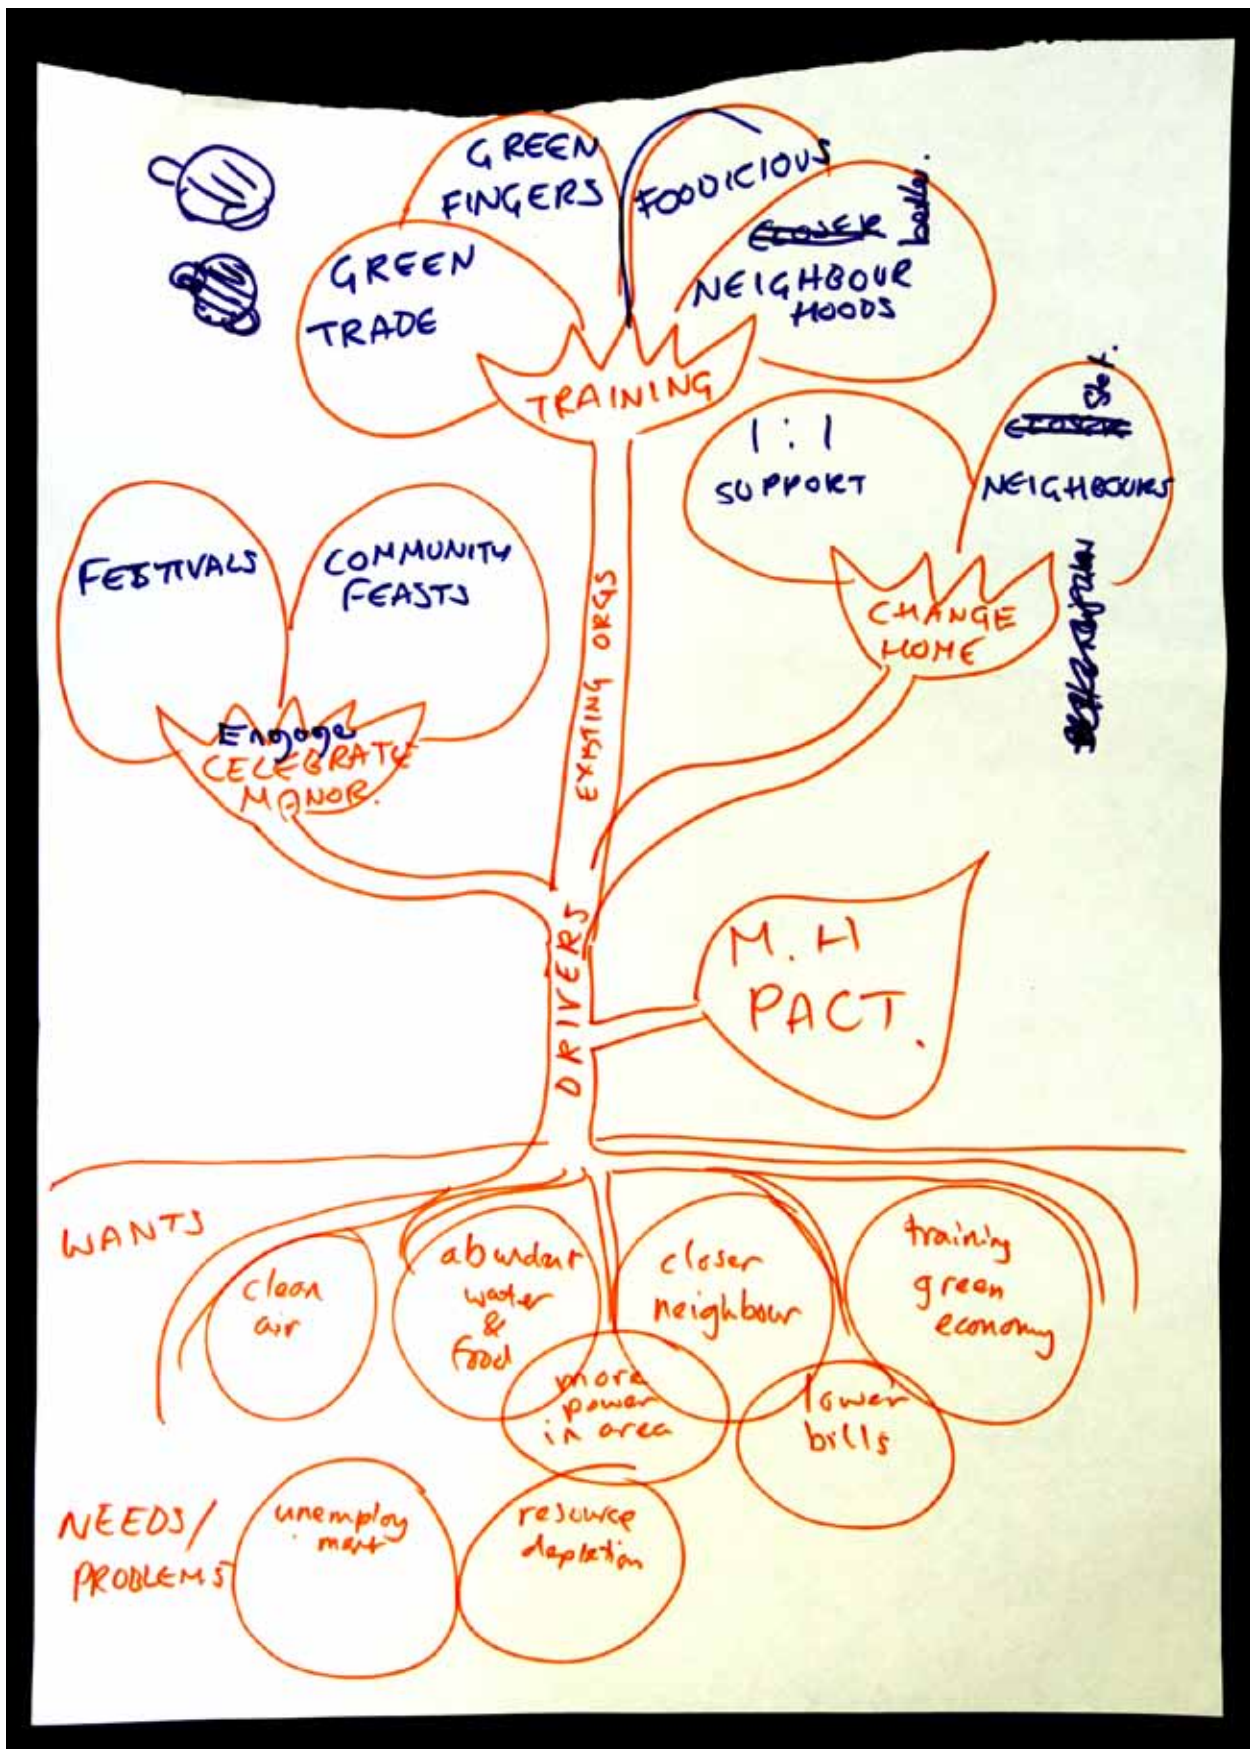 GREEN
FINGERS
FOODICIOUS
GREEN
TRADE
CLOSER
NEIGHBOUR
HOODS
TRAINING
1:1
SUPPORT
CLOSER
NEIGHBOURS
CHANGE
HOME
FESTIVALS
COMMUNITY
FEASTS
Engage
CELEBRATE
MANOR.
EXISTING ORGS
DRIVERS
M.H
PACT.
WANTS
clean
air
abundant
water
&
food
closer
neighbour
training
green
economy
more
power
in area
lower
bills
NEEDS/
PROBLEMS
unemploy
ment
resource
depletion